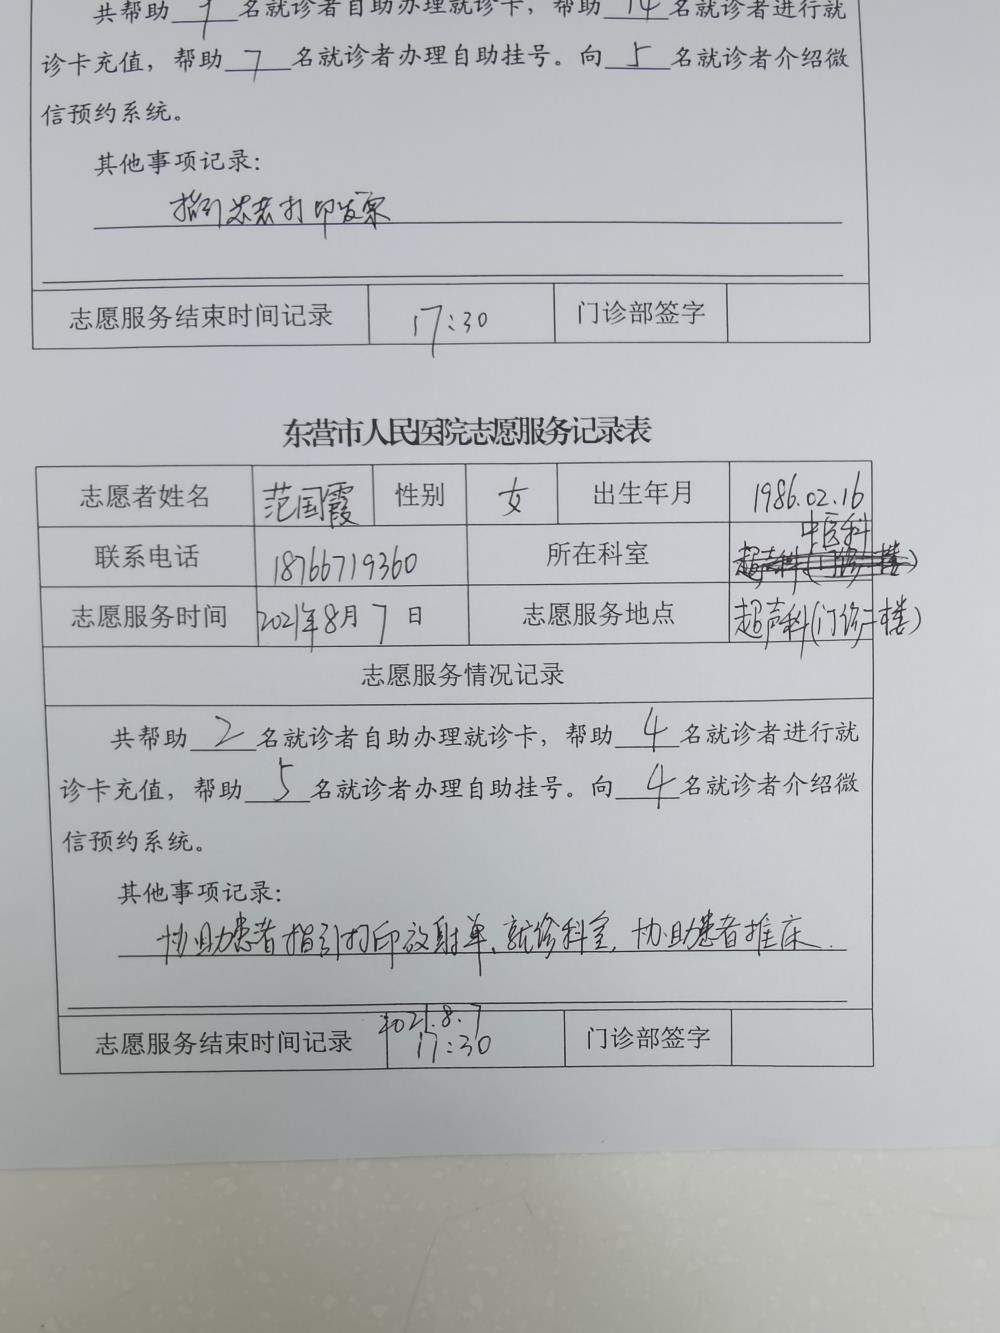 共帮助 9 名就诊者自助办理就诊卡，帮助 14 名就诊者进行就
诊卡充值，帮助 7 名就诊者办理自助挂号。向 5 名就诊者介绍微
信预约系统。
其他事项记录：
指引患者打印发票
志愿服务结束时间记录 17:30 门诊部签字
东营市人民医院志愿服务记录表
志愿者姓名 范国霞 性别 女 出生年月 1986.02.16
联系电话 18766719360 所在科室 中医科
超声科(门诊二楼)
志愿服务时间 2021年8月7日 志愿服务地点 超声科(门诊二楼)
志愿服务情况记录
共帮助 2 名就诊者自助办理就诊卡，帮助 4 名就诊者进行就
诊卡充值，帮助 5 名就诊者办理自助挂号。向 4 名就诊者介绍微
信预约系统。
其他事项记录：
协助患者指引打印放射单、就诊科室，协助患者推床.
志愿服务结束时间记录 2021.8.7 17:30 门诊部签字